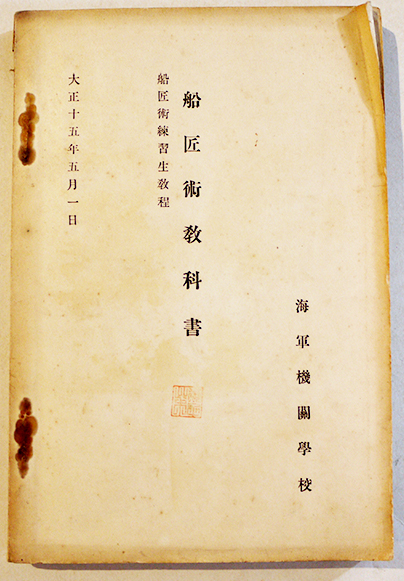 海軍機關學校
船匠術教科書
船匠術練習生教程
大正十五年五月一日